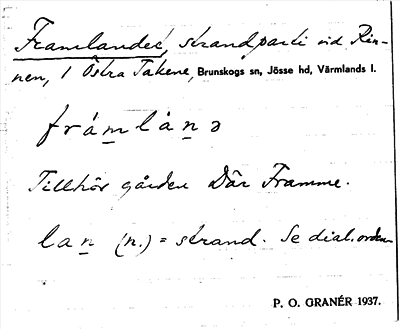 Framlandet, strandparti vid Rin-
nen, i Östra Takene, Brunskogs sn, Jösse hd, Värmlands l.
framlanə
Tillhör gården Där Framme.
lan (n.) = strand. Se dial.orden
P. O. GRANÉR 1937.